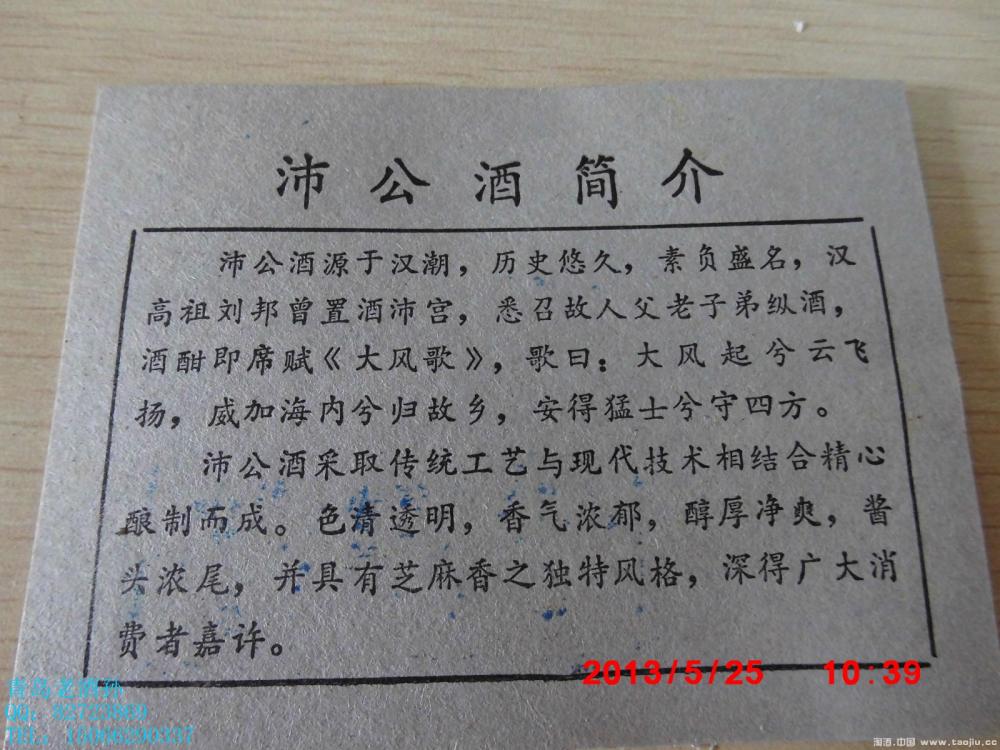 沛公酒简介
沛公酒源于汉潮，历史悠久，素负盛名，汉
高祖刘邦曾置酒沛宫，悉召故人父老子弟纵酒，
酒酣即席赋《大风歌》，歌曰：大风起兮云飞
扬，威加海内兮归故乡，安得猛士兮守四方。
沛公酒采取传统工艺与现代技术相结合精心
酿制而成。色清透明，香气浓郁，醇厚净爽，酱
头浓尾，并具有芝麻香之独特风格，深得广大消
费者嘉许。
2013/5/25 10:39
青岛老酒孙
QQ：82723869
TEL：15066290337
淘酒.中国 www.taojiu.cc